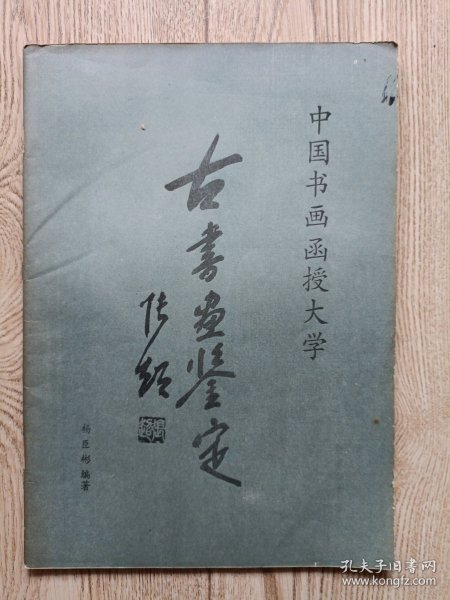 中国书画函授大学
古书画鉴定
杨臣彬编著
孔夫子旧书网
www.kongfz.com